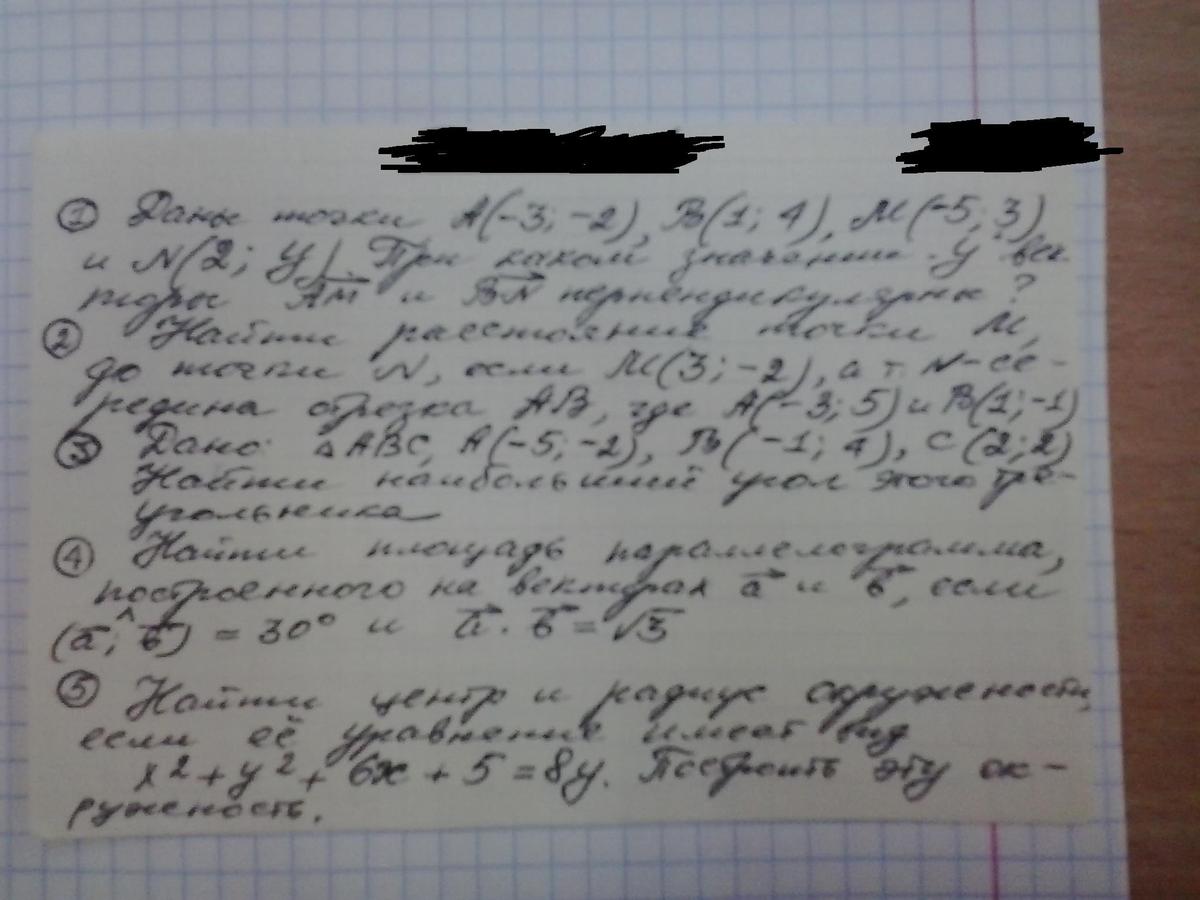 ① Даны точки A(-3; -2), B(1; 4), M(-5; 3)
и N(2; y). При каком значении y век
торы AM и BN перпендикулярны?
② Найти расстояние точки M,
до точки N, если M(3; -2), а т. N - се-
редина отрезка AB, где A(-3; 5) и B(1; -1)
③ Дано: △ABC, A(-5; -2), B(-1; 4), C(2; 2)
Найти наибольший угол этого тре-
угольника
④ Найти площадь параллелограмма,
построенного на векторах a⃗ и b⃗, если
(a⃗;^b⃗) = 30° и a⃗ · b⃗ = √3
⑤ Найти центр и радиус окружности,
если её уравнение имеет вид
x² + y² + 6x + 5 = 8y. Построить эту ок-
ружность.